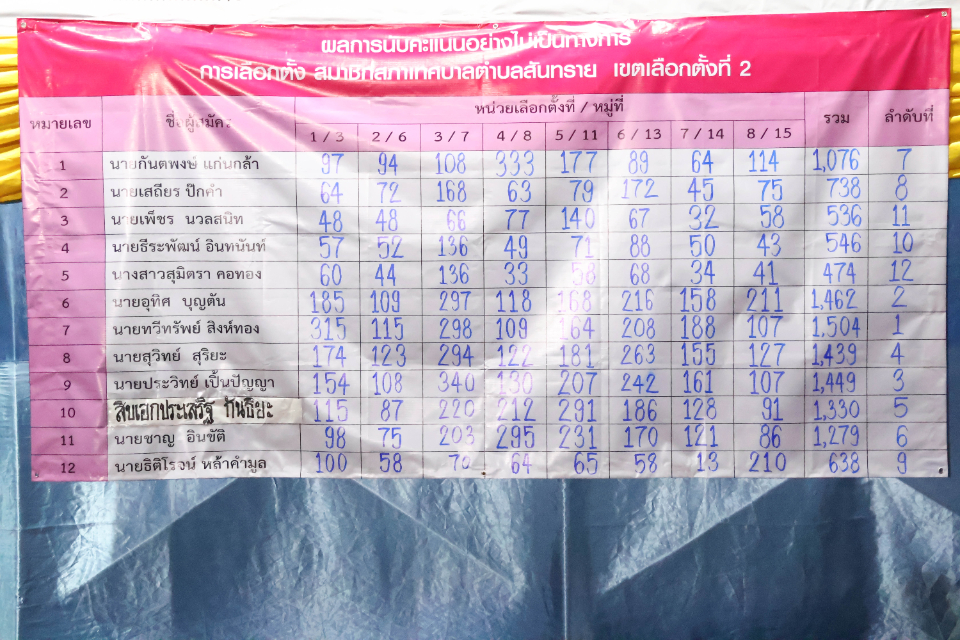 ผลการนับคะแนนอย่างไม่เป็นทางการ
การเลือกตั้ง สมาชิกสภาเทศบาลตำบลสันทราย เขตเลือกตั้งที่ 2
หมายเลข ชื่อผู้สมัคร หน่วยเลือกตั้งที่ / หมู่ที่ รวม ลำดับที่
1 / 3 2 / 6 3 / 7 4 / 8 5 / 11 6 / 13 7 / 14 8 / 15
1 นายกันตพงษ์ แก่นกล้า 97 94 108 333 177 89 64 114 1,076 7
2 นายเสถียร ปักคำ 64 72 168 63 79 172 45 75 738 8
3 นายเพ็ชร นวลสนิท 48 48 66 77 140 67 32 58 536 11
4 นายธีระพัฒน์ อินทนันท์ 57 52 136 49 71 88 50 43 546 10
5 นางสาวสุมิตรา คอทอง 60 44 136 33 58 68 34 41 474 12
6 นายอุทิศ บุญตัน 185 109 297 118 168 216 158 211 1,462 2
7 นายทวีทรัพย์ สิงห์ทอง 315 115 298 109 164 208 188 107 1,504 1
8 นายสุวิทย์ สุริยะ 174 123 294 122 181 263 155 127 1,439 4
9 นายประวิทย์ เปิ้นปัญญา 154 108 340 130 207 242 161 107 1,449 3
10 สิบเอกประเสริฐ กันธิยะ 115 87 220 212 291 186 128 91 1,330 5
11 นายชาญ อินขัติ 98 75 203 295 231 170 121 86 1,279 6
12 นายธิติโรจน์ หล้าคำมูล 100 58 70 64 65 58 13 210 638 9